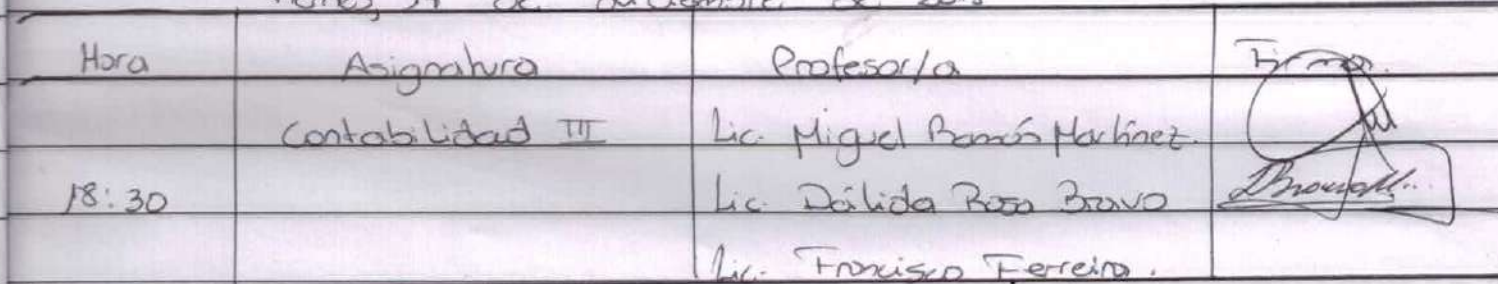 de de
Hora Asignatura Profesor/a Firma.
Contabilidad III Lic. Miguel Ramón Martínez.
18:30 Lic. Dálida Rosa Bravo
Lic. Francisco Ferreira.